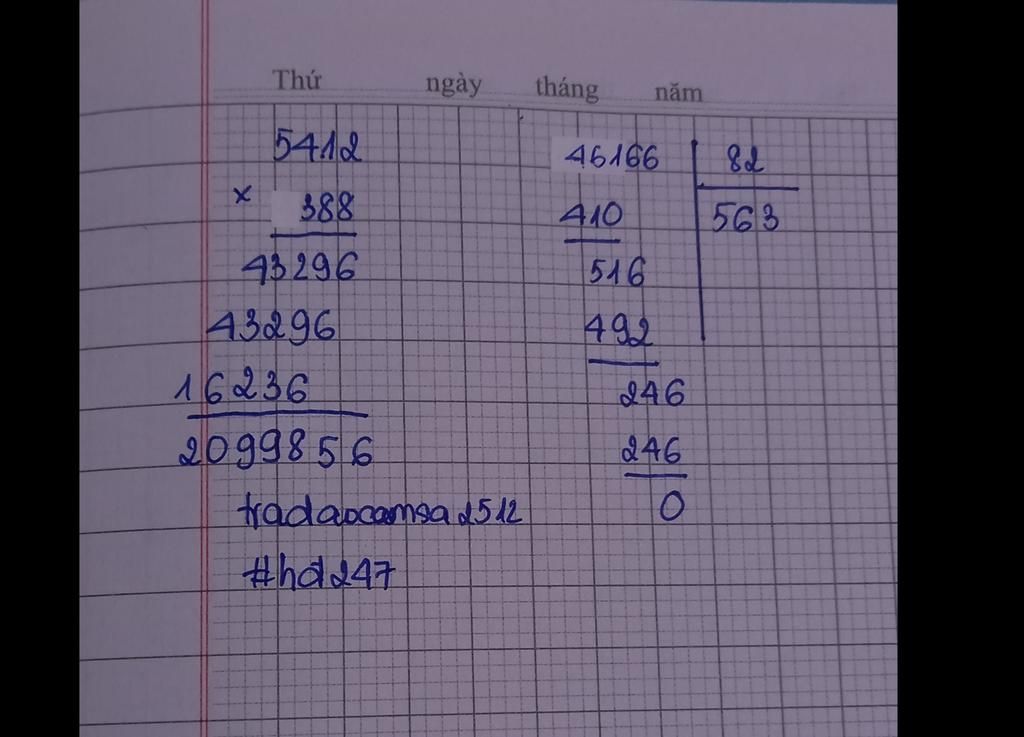 Thứ ngày tháng năm
5412
× 388
43296
43296
16236
2099856
tradaocamsa2512
#hd247
46166 82
410 563
516
492
246
246
0